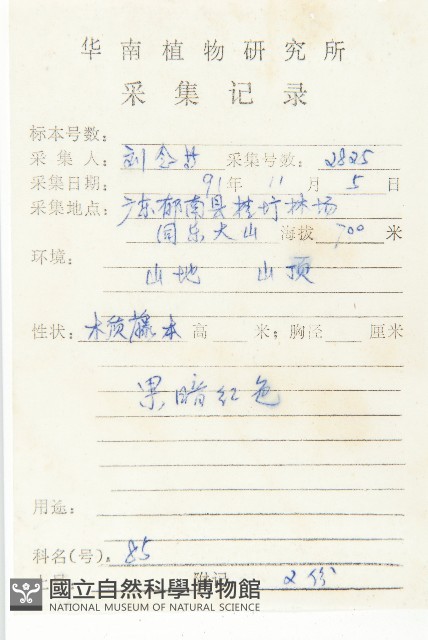 华南植物研究所
采集记录
标本号数：
采集人：刘念 采集号数：2825
采集日期：91年11月5日
采集地点：广东郁南县桂圩林场
同乐大山 海拔700米
环境：
山地 山顶
性状：木质藤本 高 米；胸径 厘米
果暗红色
用途：
科名(号)：85
附记 2份
國立自然科學博物館
NATIONAL MUSEUM OF NATURAL SCIENCE